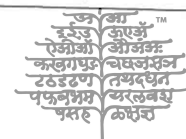 ज आ TM
इईउ ऊएॲ
ऐओऔ ओअंअः
कखगघङ चछजझञ
टठडढण तथदधन
पफबभम यरलवश
षसह ळक्षज्ञ